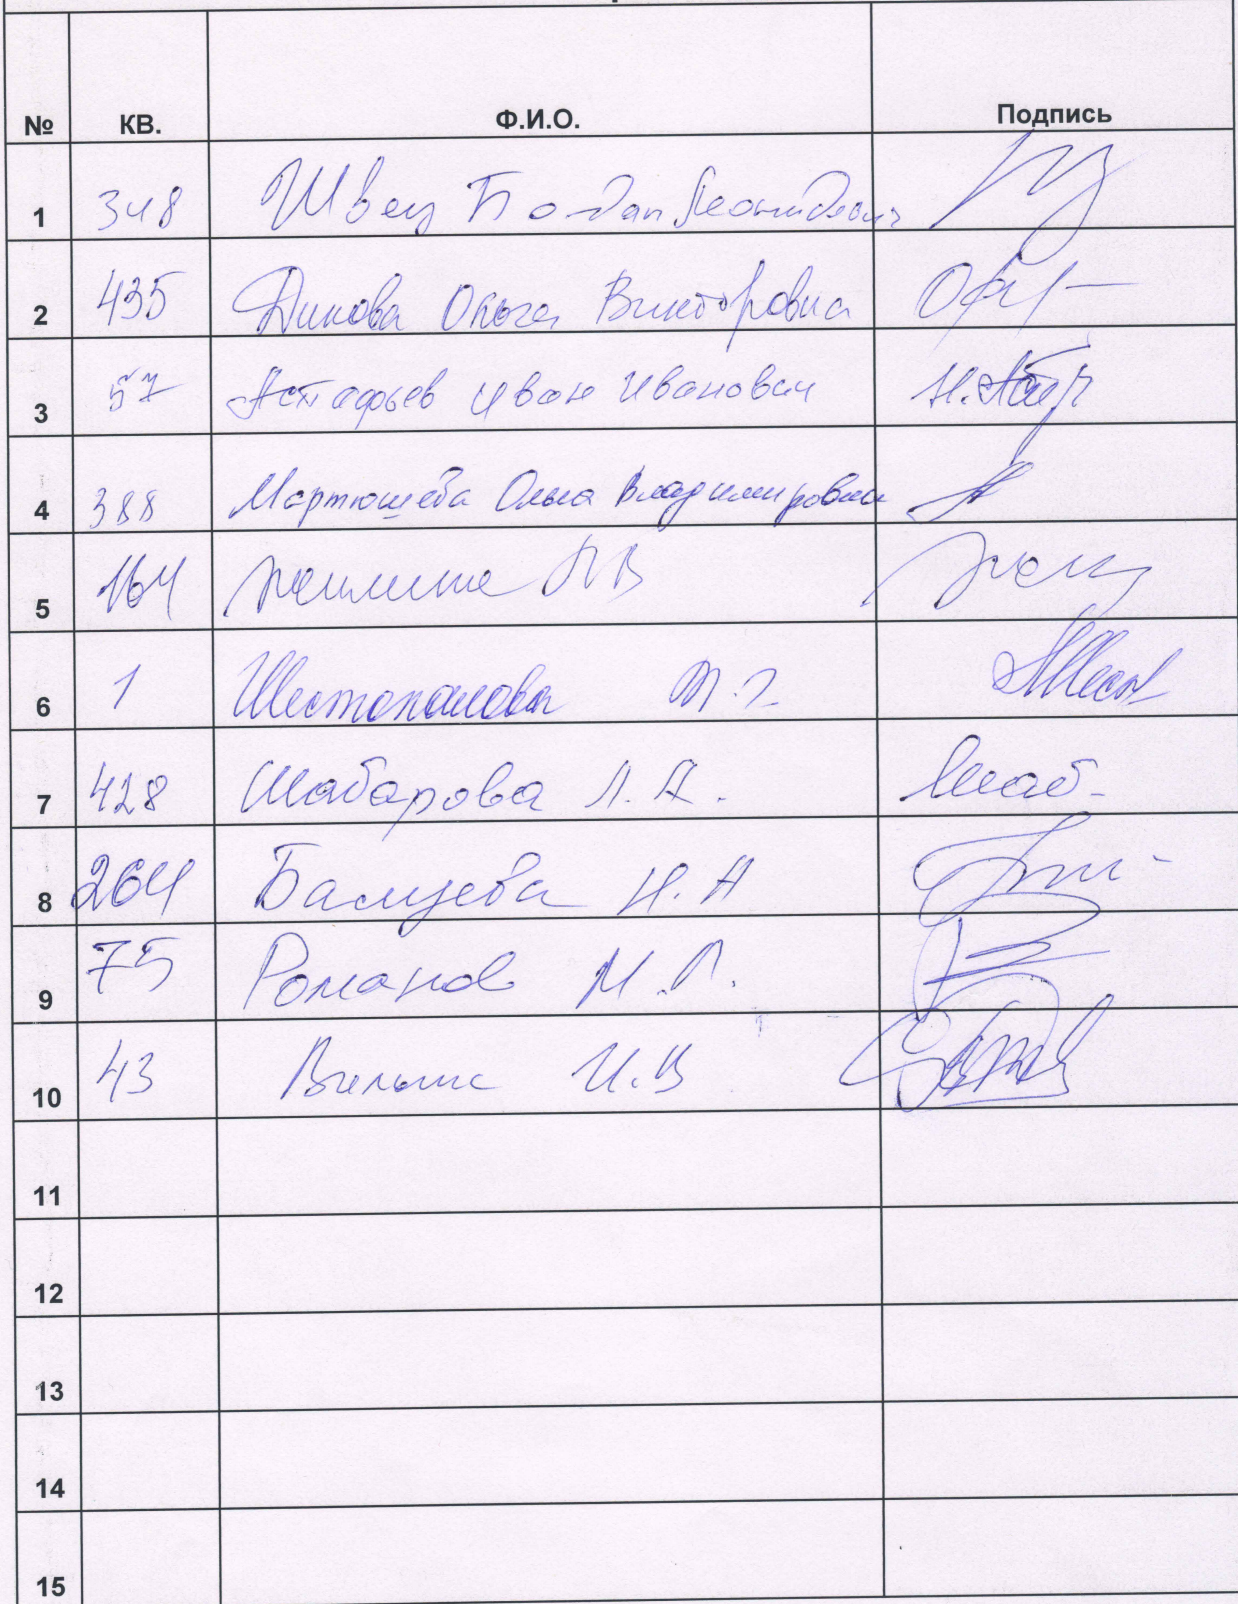 № КВ. Ф.И.О. Подпись
1 348 Швец Богдан Леонидович
2 435 Дикова Ольга Викторовна
3 57 Астафьев Иван Иванович
4 388 Мартюшева Ольга Владимировна
5 164
6 1 Шестопалова
7 428 Шабарова Л.А.
8 264 Балуева Н.А
9 75 Романов М.П.
10 43 И.В
11
12
13
14
15